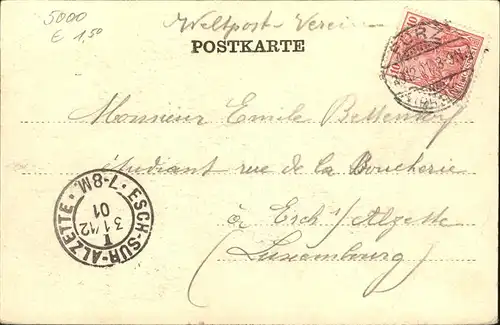 5000
€ 1,50
Weltpost-Verein
POSTKARTE
10
Monsieur Emile Bettendorf
étudiant rue de la Boucherie
à Esch s/Alzette
(Luxembourg)
ESCH-SUR-ALZETTE · 7-8M ·
31/12
01
I